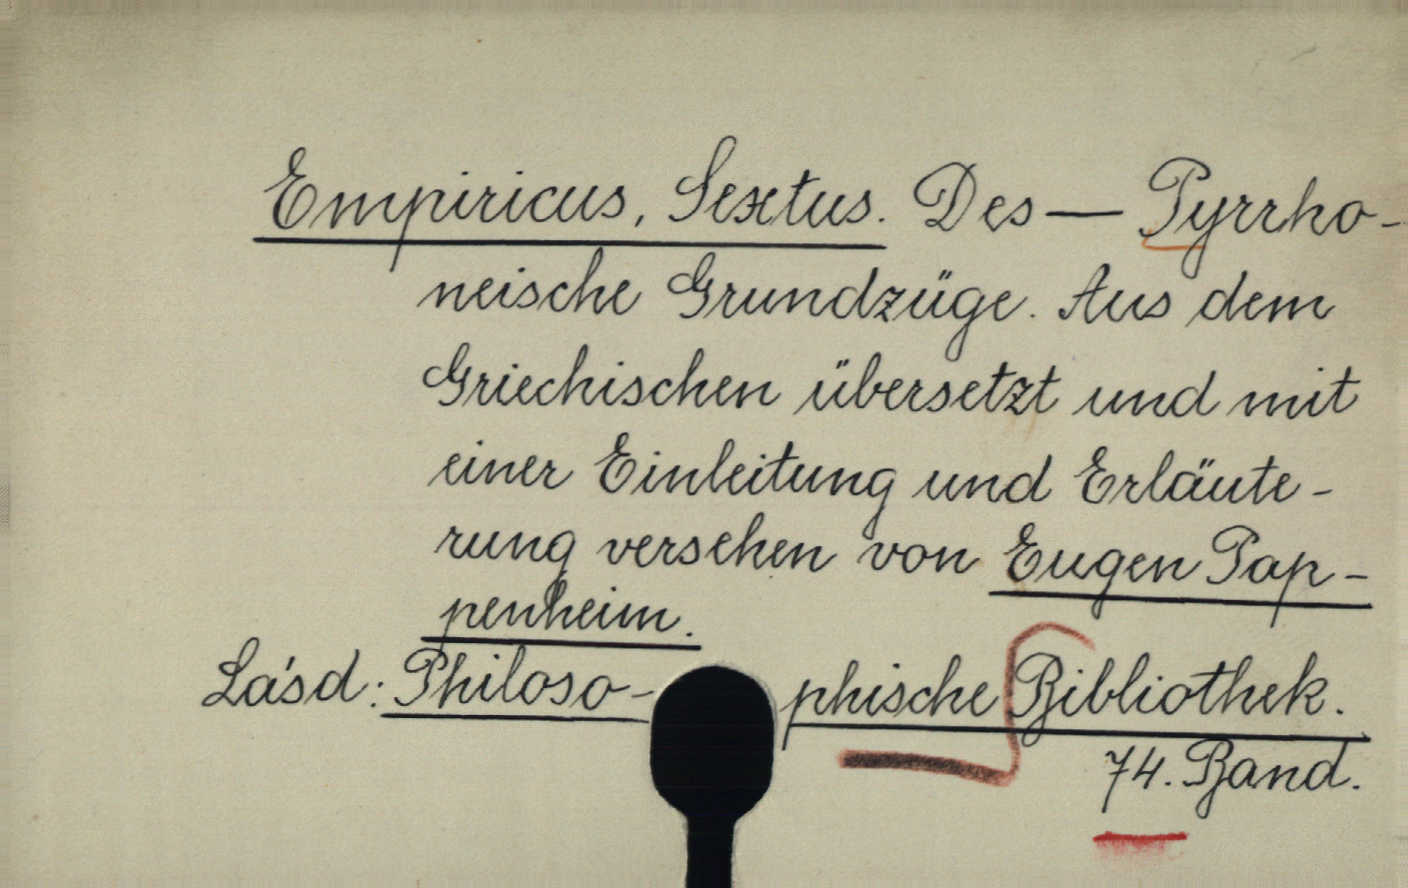 Empiricus, Sextus. Des — Pyrrho-
neische Grundzüge. Aus dem
Griechischen übersetzt und mit
einer Einleitung und Erläute-
rung versehen von Eugen Pap-
penheim.
Lásd: Philoso- phische Bibliothek.
74. Band.